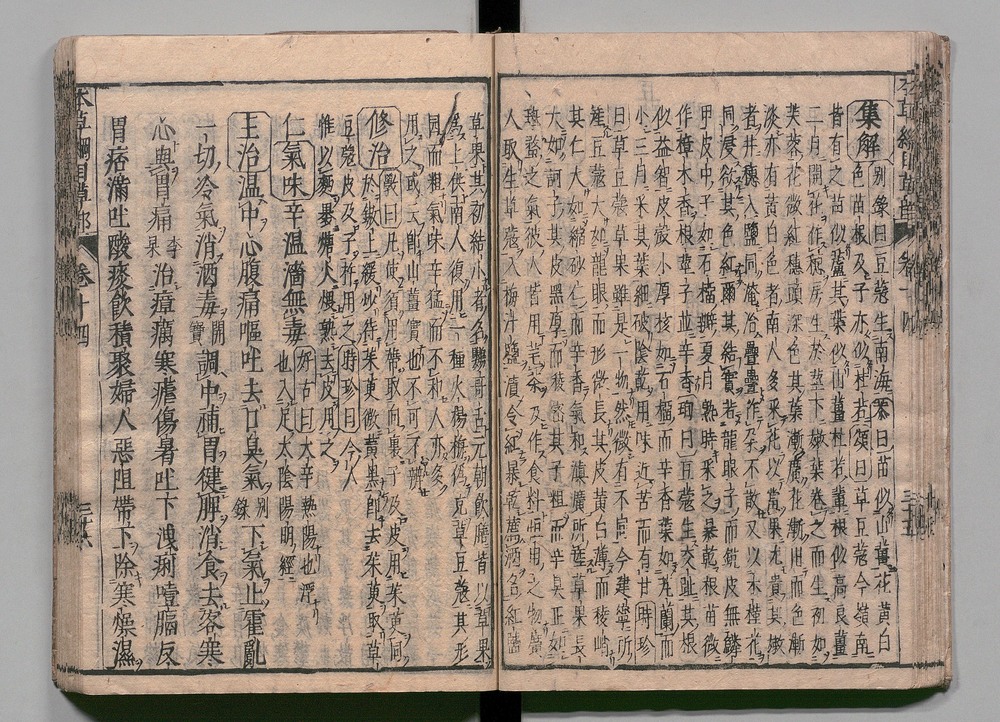 集解 別錄曰豆蔻生南海恭曰苗似山薑花黃白
色苗根及子亦似杜若頌曰草豆蔻今嶺南
皆有之苗似蘆其葉似山薑杜若輩根似高良薑
二月開花作穗房生於莖下嫩葉卷之而生初如
芙蓉花微紅穗頭深色其葉漸廣花漸出而色漸
淡亦有黃白色者南人多采花以當果尤貴其嫩
者并穗入鹽同淹治疊疊作朶不散又以木槿花
同浸欲其色紅爾其結實若龍眼子而銳皮無鱗
甲皮中子如石榴瓣夏月熟時采之暴乾根苗微
作樟木香根莖子並辛香珣曰豆蔻生交趾其根
似益智皮殼小厚核如石榴而辛香葉如芄蘭而
小三月采其葉細破陰乾用味近苦而有甘時珍
曰草豆蔻草果雖是一物然微有不同今建寧所
產豆蔻大如龍眼而形微長其皮黃白薄而稜峭
其仁大如縮砂仁而辛香氣和滇廣所產草果長
大如訶子其皮黑厚而稜密其子粗而辛臭正如
斑蝥之氣彼人皆用芼茶及作食料恒用之物廣
人取生草蔻入梅汁鹽漬令紅暴乾薦酒名紅鹽
草果其初結小者名鸚哥舌元朝飲膳皆以草果
爲上供南人復用一種火楊梅僞充草豆蔻其形
圓而粗氣味辛猛而不和人亦多
用之或云卽山薑實也不可不辨
修治 斅曰凡使須用蒂取向裏子及皮用茱萸同
於鏊上緩炒待茱萸微黃黑卽去茱萸取草
豆蔻皮及子杵用之時珍曰今人
惟以麪裹煻火煨熟去皮用之
仁氣味辛溫濇無毒 好古曰大辛熱陽也浮
也入足太陰陽明經
主治溫中心腹痛嘔吐去口臭氣 別錄 下氣止霍亂
一切冷氣消酒毒 開寶 調中補胃健脾消食去客寒
心與胃痛 李杲 治瘴癘寒瘧傷暑吐下洩痢噎膈反
胃痞滿吐酸痰飲積聚婦人惡阻帶下除寒燥濕
卷十四